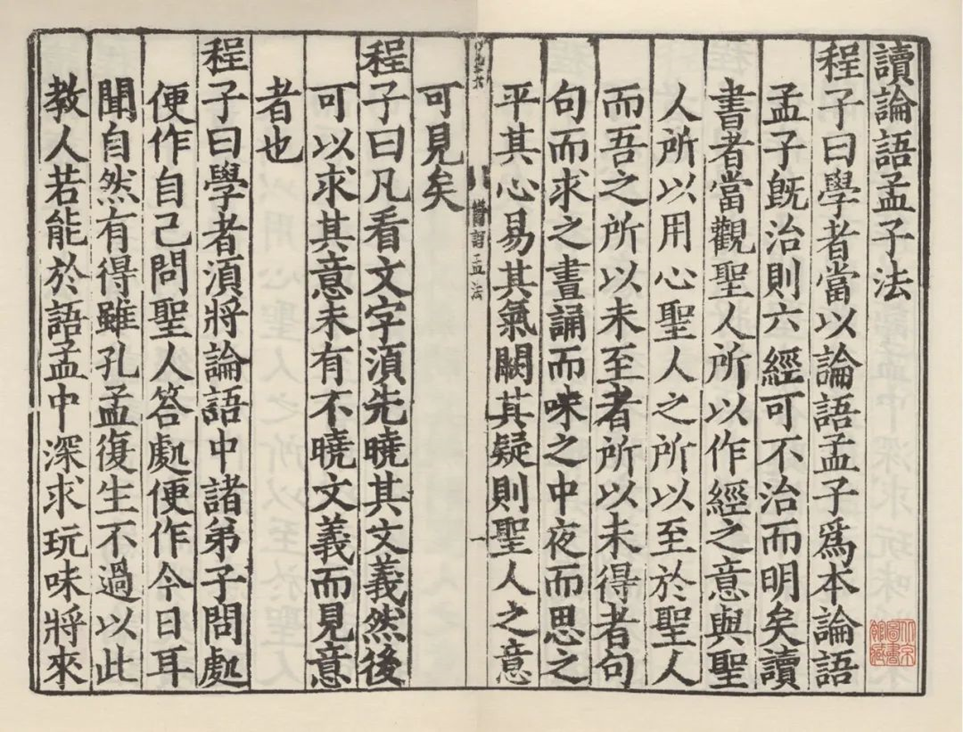 讀論語孟子法
程子曰學者當以論語孟子爲本論語
孟子旣治則六經可不治而明矣讀
書者當觀聖人所以作經之意與聖
人所以用心聖人之所以至於聖人
而吾之所以未至者所以未得者句
句而求之晝誦而味之中夜而思之
平其心易其氣闕其疑則聖人之意
可見矣
程子曰凡看文字須先曉其文義然後
可以求其意未有不曉文義而見意
者也
程子曰學者須將論語中諸弟子問處
便作自己問聖人答處便作今日耳
聞自然有得雖孔孟復生不過以此
教人若能於語孟中深求玩味將來